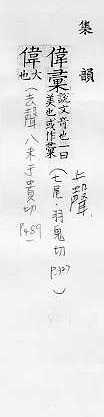 集韻
上聲
偉彙說文奇也一曰美也或作彙
(七尾‧羽鬼切 P327)
偉大也
(去聲 八未 于貴切 P489)